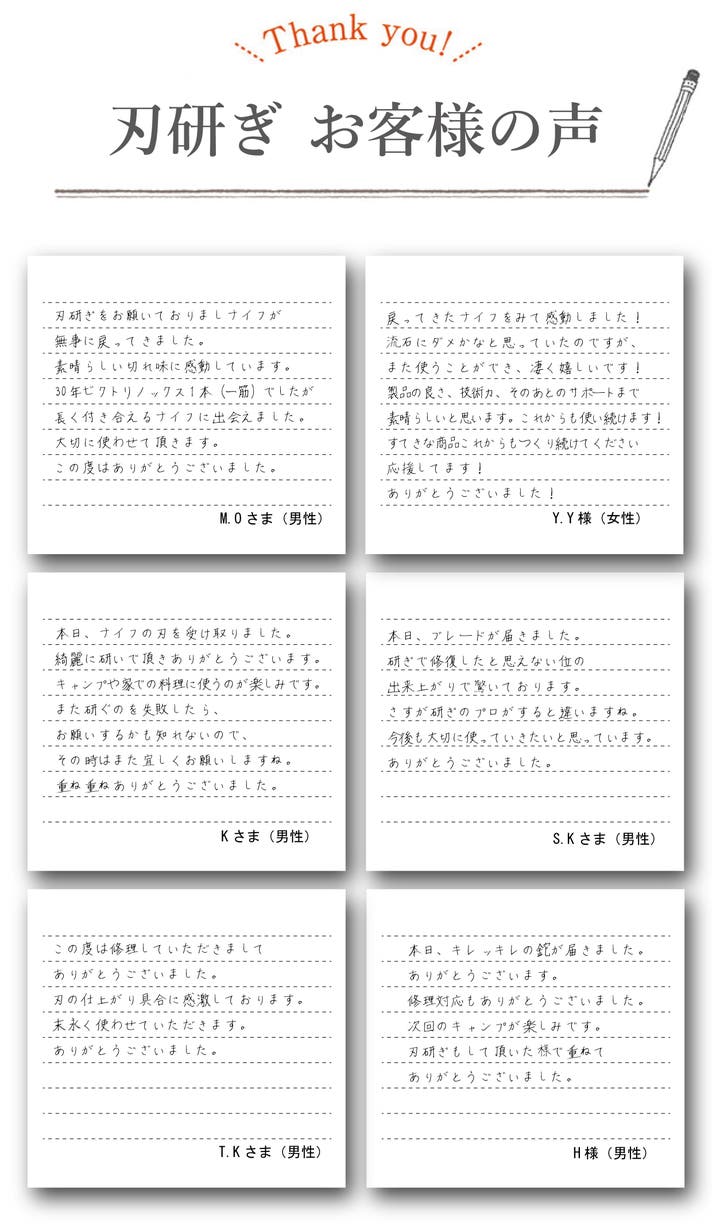 Thank you!
刃研ぎ お客様の声
刃研ぎをお願いておりましナイフが
無事に戻ってきました。
素晴らしい切れ味に感動しています。
30年ビクトリノックス1本（一筋）でしたが
長く付き合えるナイフに出会えました。
大切に使わせて頂きます。
この度はありがとうございました。
M.Oさま（男性）
戻ってきたナイフをみて感動しました！
流石にダメかなと思っていたのですが、
また使うことができ、凄く嬉しいです！
製品の良さ、技術力、そのあとのサポートまで
素晴らしいと思います。これからも使い続けます！
すてきな商品これからもつくり続けてください
応援してます！
ありがとうございました！
Y.Y様（女性）
本日、ナイフの刃を受け取りました。
綺麗に研いで頂きありがとうございます。
キャンプや家での料理に使うのが楽しみです。
また研ぐのを失敗したら、
お願いするかも知れないので、
その時はまた宜しくお願いしますね。
重ね重ねありがとうございました。
Kさま（男性）
本日、ブレードが届きました。
研ぎで修復したと思えない位の
出来上がりで驚いております。
さすが研ぎのプロがすると違いますね。
今後も大切に使っていきたいと思っています。
ありがとうございました。
S.Kさま（男性）
この度は修理していただきまして
ありがとうございました。
刃の仕上がり具合に感激しております。
末永く使わせていただきます。
ありがとうございました。
T.Kさま（男性）
本日、キレッキレの鉈が届きました。
ありがとうございます。
修理対応もありがとうございました。
次回のキャンプが楽しみです。
刃研ぎもして頂いた様で重ねて
ありがとうございました。
H様（男性）